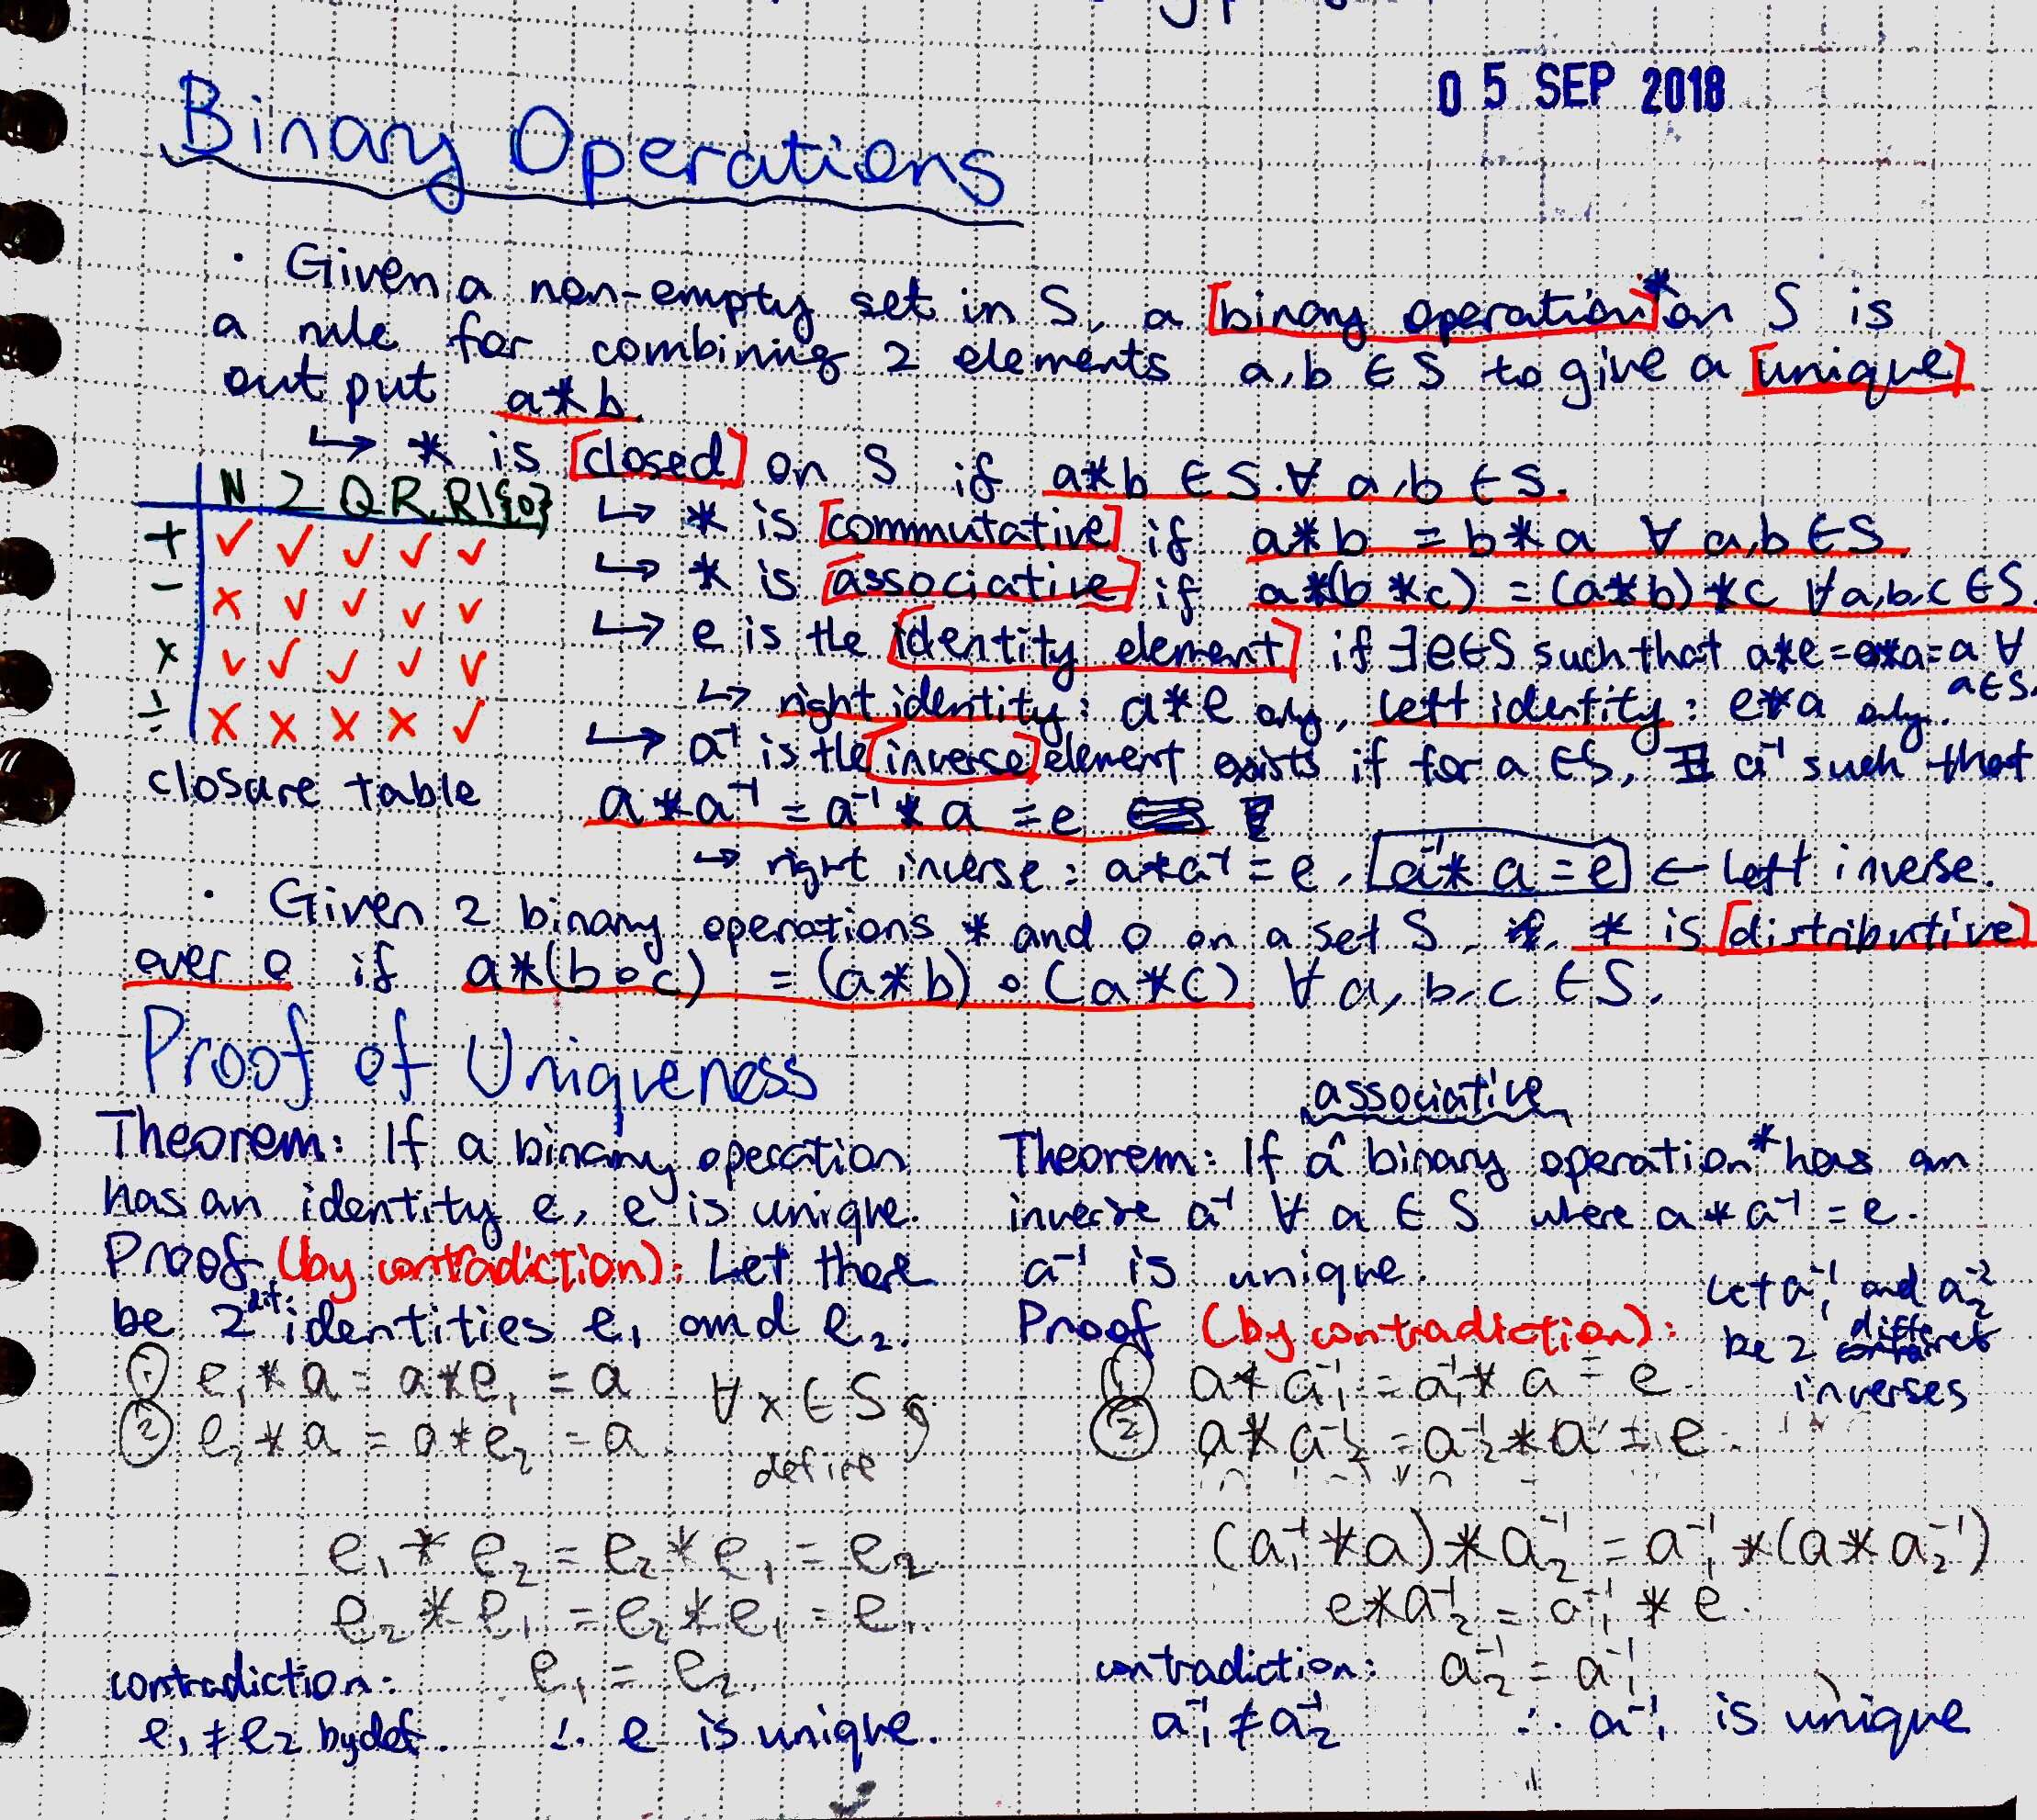 05 SEP 2018
Binary Operations
· Given a non-empty set in S, a [binary operation]* on S is
a rule for combining 2 elements a,b ∈ S to give a [unique]
output a*b.
↳ * is [closed] on S if a*b ∈ S ∀ a,b ∈ S.
↳ * is [commutative] if a*b = b*a ∀ a,b ∈ S
↳ * is [associative] if a*(b*c) = (a*b)*c ∀a,b,c ∈ S.
↳ e is the [identity element] if ∃e∈S such that a*e=e*a=a ∀ a∈S.
↳ right identity: a*e only, left identity: e*a only.
↳ a⁻¹ is the [inverse] element exists if for a ∈ S, ∃ a⁻¹ such that
a*a⁻¹ = a⁻¹*a = e
→ right inverse: a*a⁻¹ = e, [a⁻¹*a = e] ← left inverse.
N Z Q R R\{0}
+ ✓ ✓ ✓ ✓ ✓
- x ✓ ✓ ✓ ✓
x ✓ ✓ ✓ ✓ ✓
÷ x x x x ✓
closure table
· Given 2 binary operations * and o on a set S, * is [distributive]
over o if a*(b∘c) = (a*b)∘(a*c) ∀ a,b,c ∈ S.
Proof of Uniqueness
Theorem: If a binary operation
has an identity e, e is unique.
Proof (by contradiction): Let there
be 2 dif. identities e₁ and e₂.
① e₁*a = a*e₁ = a
② e₂*a = a*e₂ = a
∀x∈S,
define
e₁*e₂ = e₂*e₁ = e₂.
e₂*e₁ = e₂*e₁ = e₁.
contradiction: e₁ = e₂
e₁≠e₂ by def. ∴ e is unique.
associative
Theorem: If a ^ binary operation * has an
inverse a⁻¹ ∀ a ∈ S where a*a⁻¹ = e.
a⁻¹ is unique.
Proof (by contradiction):
Let a₁⁻¹ and a₂⁻²
be 2 different
inverses
① a*a₁⁻¹ = a₁⁻¹*a = e
② a*a₂⁻¹ = a₂⁻¹*a = e.
(a₁⁻¹*a)*a₂⁻¹ = a₁⁻¹*(a*a₂⁻¹)
e*a₂⁻¹ = a₁⁻¹*e.
contradiction: a₂⁻¹ = a₁⁻¹
a₁⁻¹ ≠ a₂⁻¹ ∴ a₁⁻¹ is unique